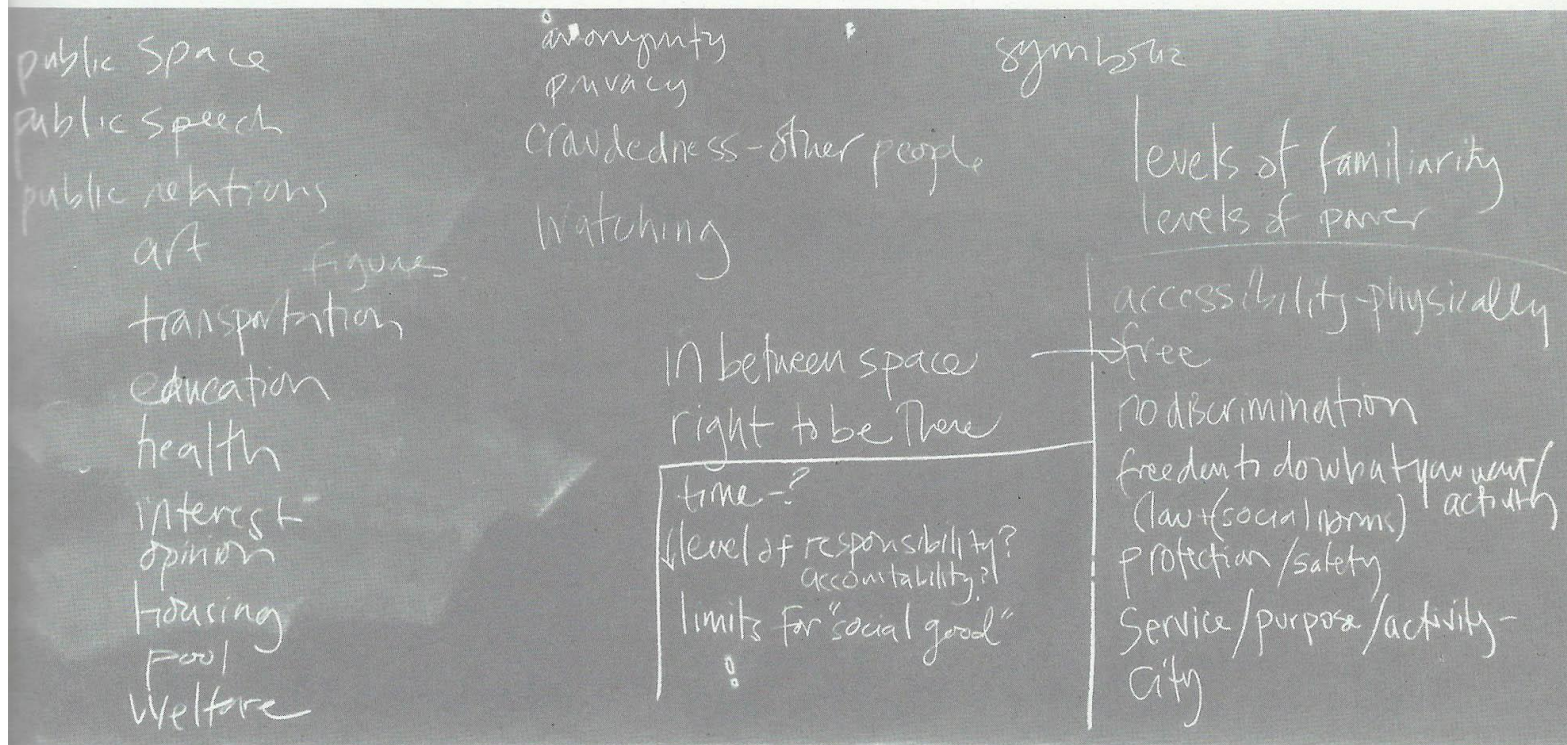 public space
public speech
public relations
art
figures
transportation
education
health
interest
opinion
housing
pool
welfare
anonymity
privacy
crowdedness - other people
watching
in between space
right to be there
time - ?
level of responsibility?
accountability?
limits for "social good"
!
symbolic
levels of familiarity
levels of power
accessibility - physically
free
no discrimination
freedom to do what you want/
activity
(law + (social norms)
protection/safety
service/purpose/activity -
city